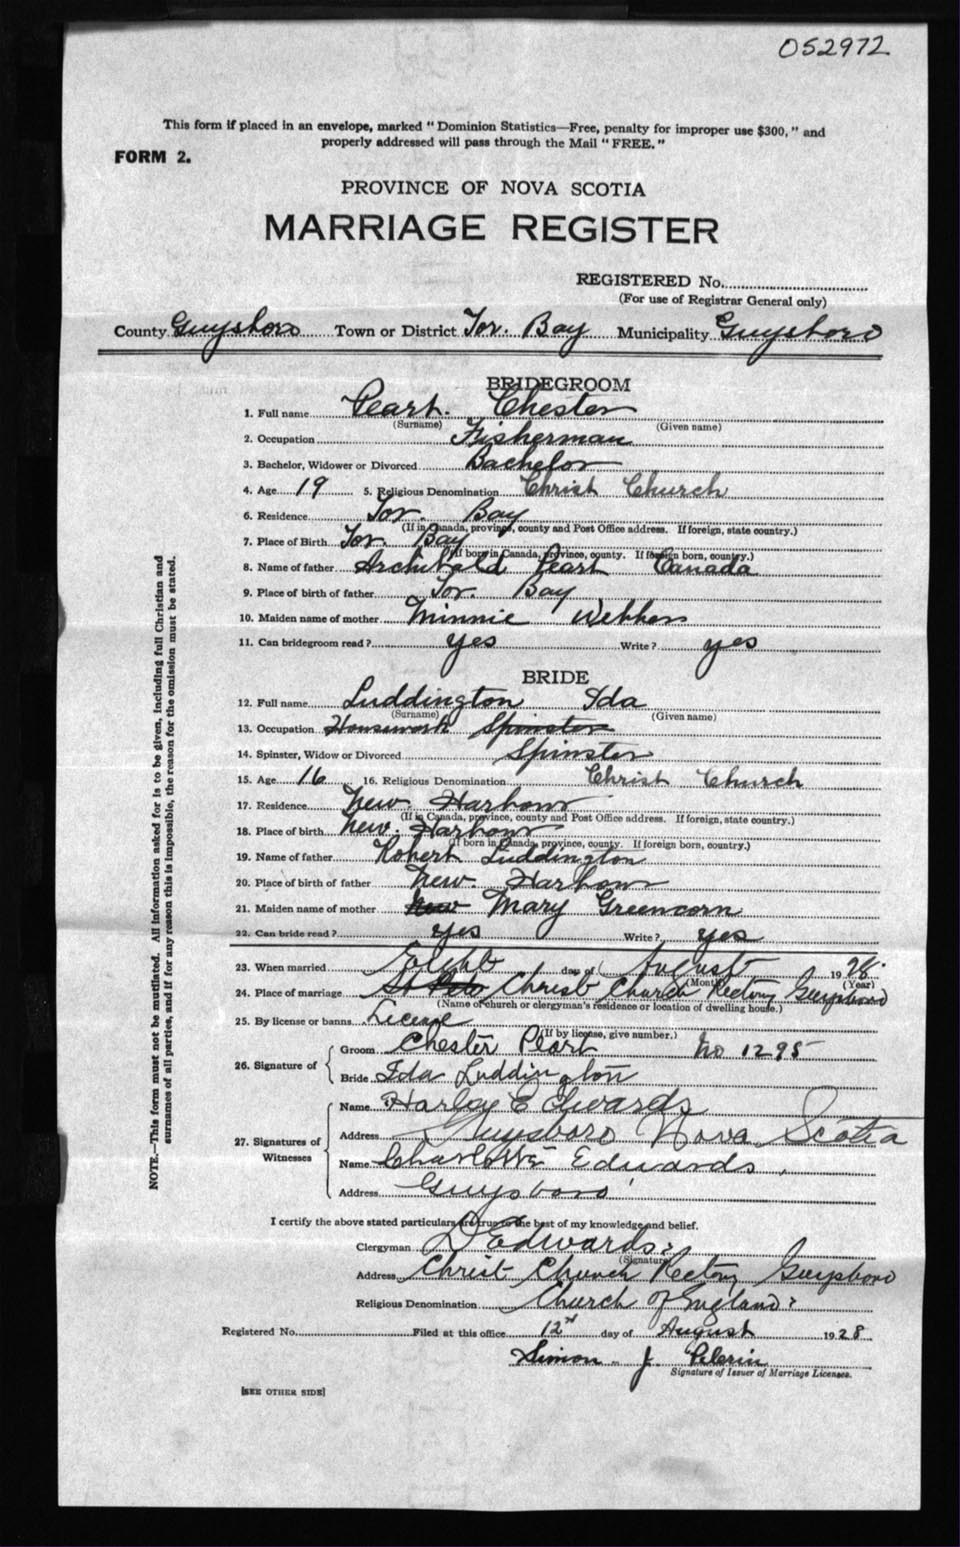 052972
This form if placed in an envelope, marked "Dominion Statistics—Free, penalty for improper use $300," and
properly addressed will pass through the Mail "FREE."
FORM 2.
PROVINCE OF NOVA SCOTIA
MARRIAGE REGISTER
REGISTERED No.
(For use of Registrar General only)
County Guysboro Town or District Tor. Bay Municipality Guysboro
BRIDEGROOM
1. Full name Peart. Chester
(Surname) (Given name)
2. Occupation Fisherman
3. Bachelor, Widower or Divorced Bachelor
4. Age 19 5. Religious Denomination Christ Church
6. Residence Tor. Bay
(If in Canada, province, county and Post Office address. If foreign, state country.)
7. Place of Birth Tor. Bay
(If born in Canada, province, county. If foreign born, country.)
8. Name of father Archibald Peart Canada
9. Place of birth of father Tor. Bay
10. Maiden name of mother Minnie Webber
11. Can bridegroom read? yes Write? yes
BRIDE
12. Full name Luddington Ida
(Surname) (Given name)
13. Occupation Housework Spinster
14. Spinster, Widow or Divorced Spinster
15. Age 16 16. Religious Denomination Christ Church
17. Residence New. Harbour
(If in Canada, province, county and Post Office address. If foreign, state country.)
18. Place of birth New. Harbour
(If born in Canada, province, county. If foreign born, country.)
19. Name of father Robert Luddington
20. Place of birth of father New. Harbour
21. Maiden name of mother New Mary Greencorn
22. Can bride read? yes Write? yes
23. When married day of August 1928.
(Month) (Year)
24. Place of marriage Christ Church Rectory Guysboro
(Name of church or clergyman's residence or location of dwelling house.)
25. By license or banns License
(If by license, give number.)
26. Signature of Groom Chester Peart No 1295
Bride Ida Luddington
27. Signatures of Witnesses Name Harley Edwards
Address Guysboro Nova Scotia
Name Charlotte Edwards
Address Guysboro
I certify the above stated particulars are true to the best of my knowledge and belief.
Clergyman D Edwards
(Signature)
Address Christ Church Rectory Guysboro
Religious Denomination Church of England
Registered No. Filed at this office 12 day of August 1928
Simon J. Pelerin
Signature of Issuer of Marriage Licenses.
[SEE OTHER SIDE]
NOTE.—This form must not be mutilated. All information asked for is to be given, including full Christian and
surnames of all parties, and if for any reason this is impossible, the reason for the omission must be stated.